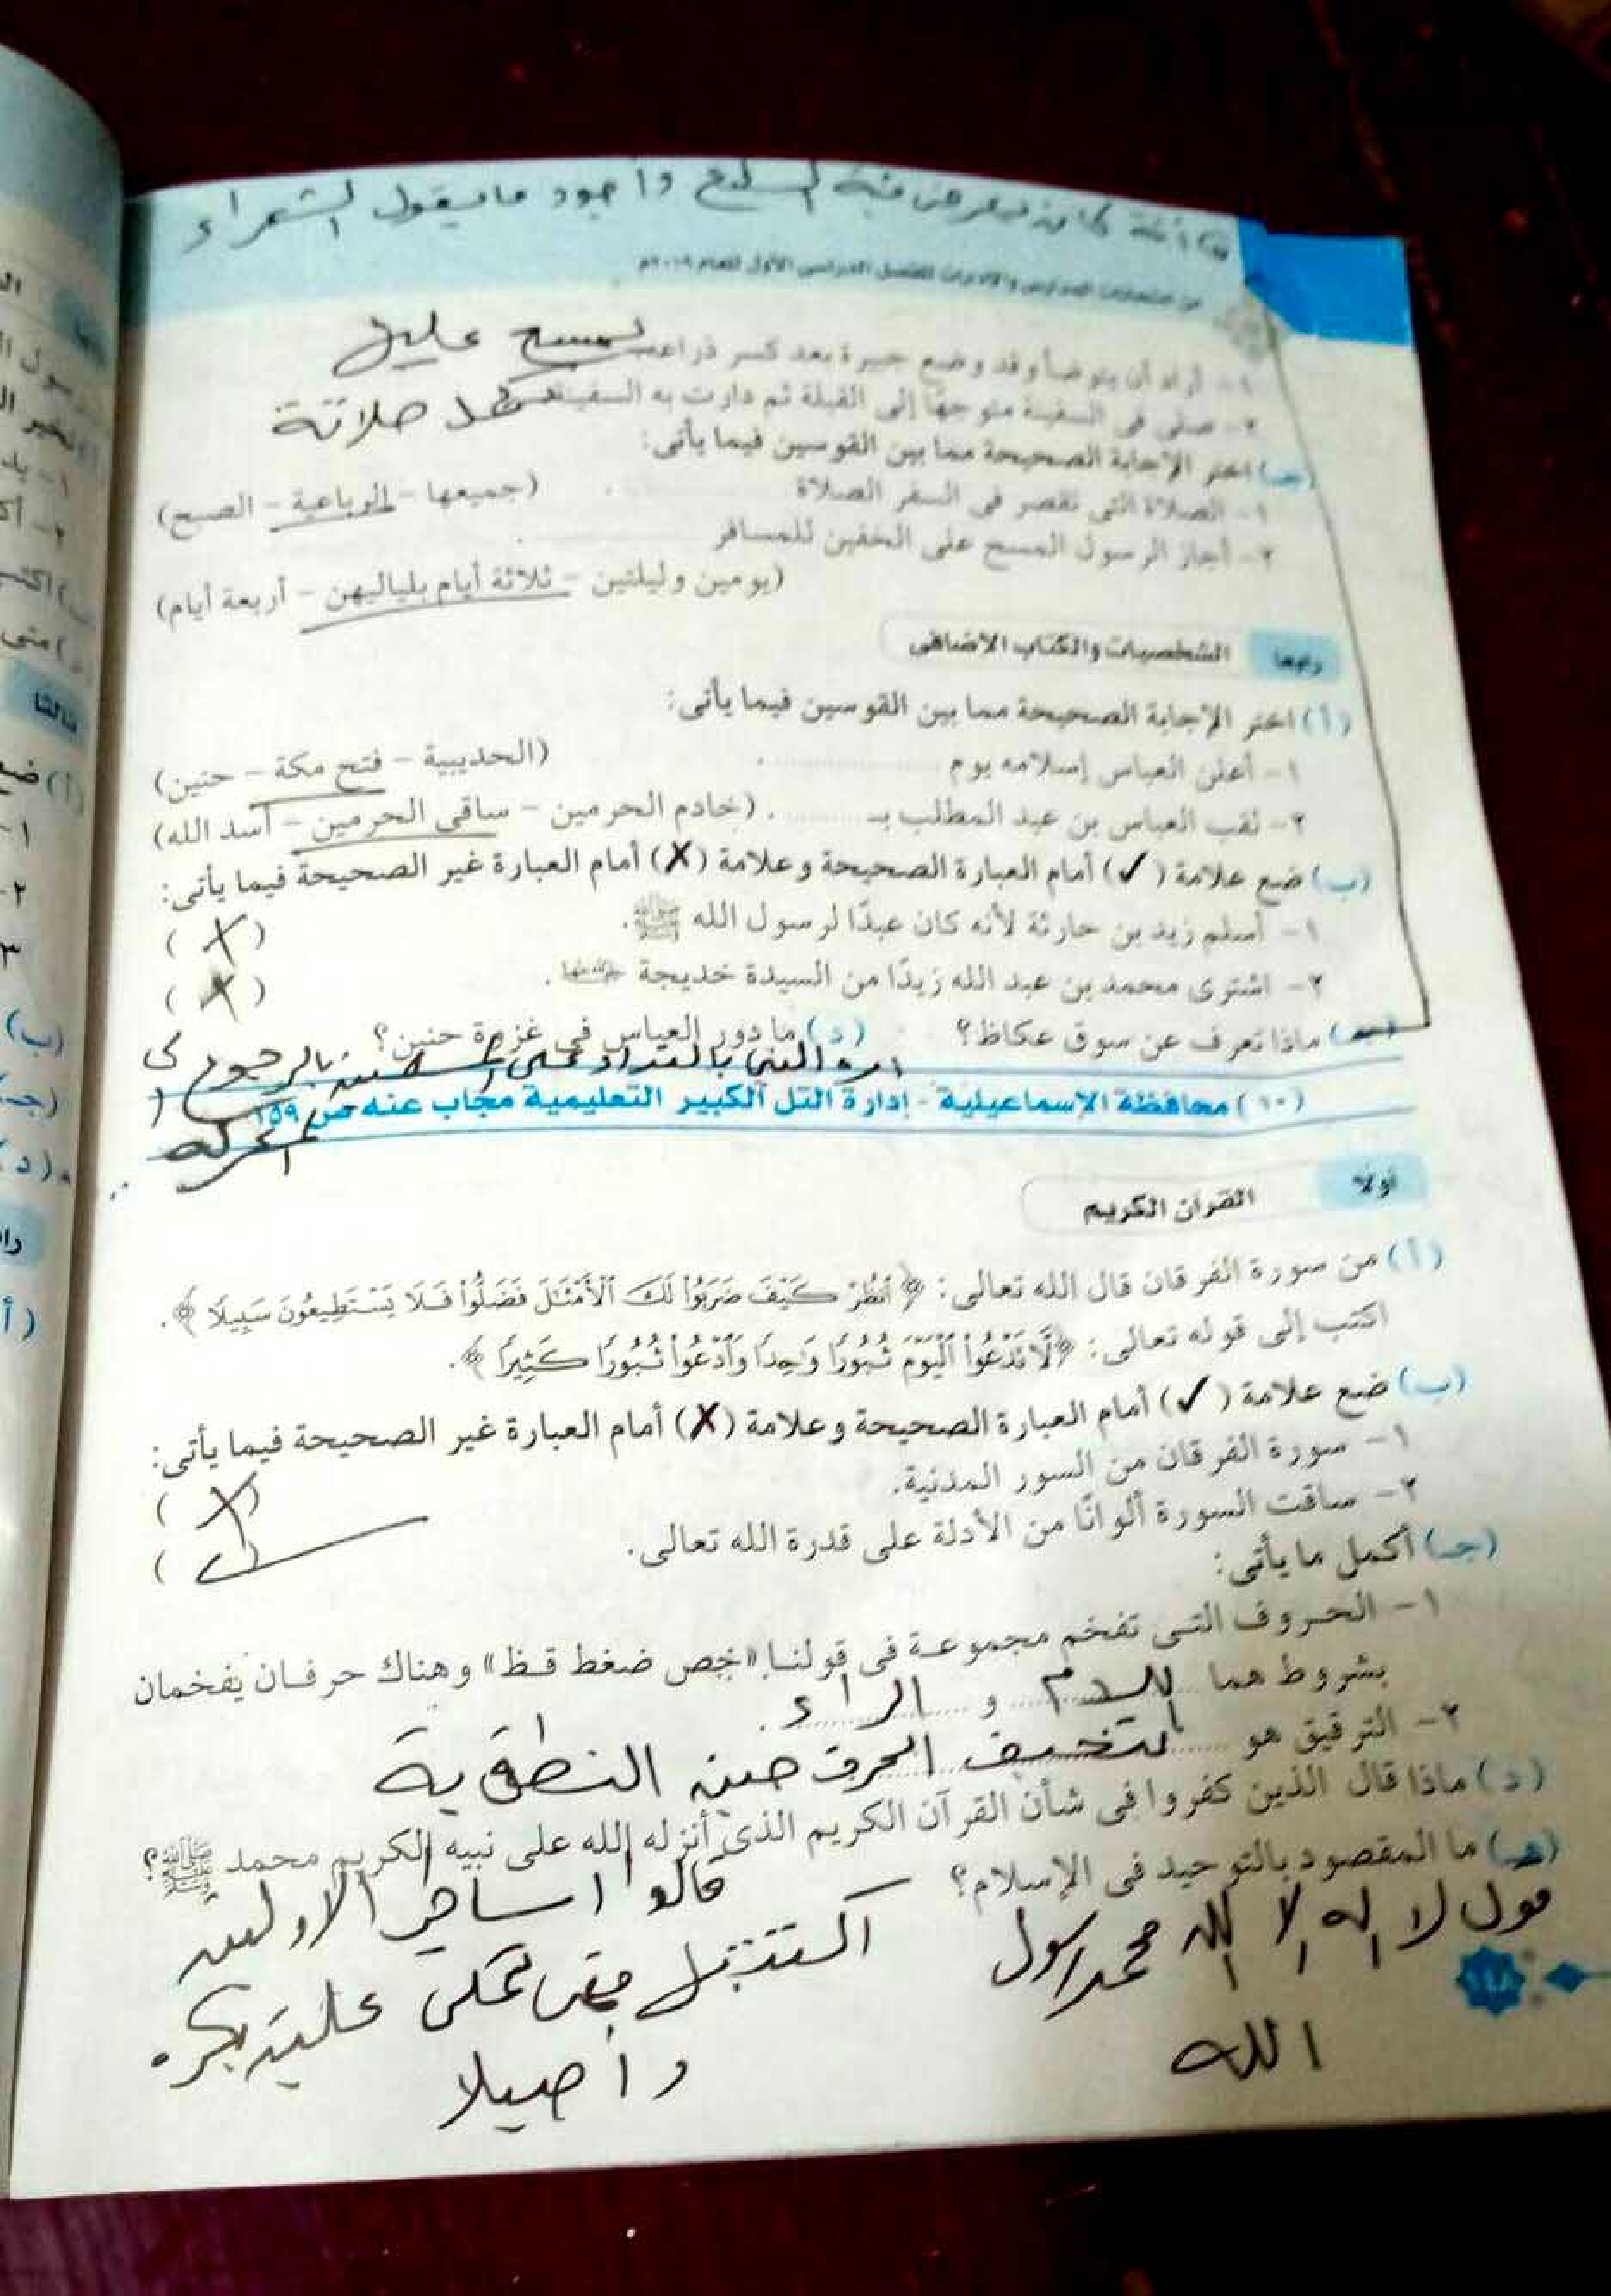 وأنه كان يعرض فيه السلع وأجود ما يقول الشعراء
من امتحانات المدارس والإدارات للفصل الدراسى الأول للعام ٢٠١٩م
١- أراد أن يتوضأ وقد وضع جبيرة بعد كسر ذراعه يمسح عليها
٢- صلى فى السفينة متوجهًا إلى القبلة ثم دارت به السفينة يكمل صلاتة
(جـ) اختر الإجابة الصحيحة مما بين القوسين فيما يأتى:
١- الصلاة التى تقصر فى السفر الصلاة .......... . (جميعها - الرباعية - الصبح)
٢- أجاز الرسول المسح على الخفين للمسافر .......... .
(يومين وليلتين - ثلاثة أيام بلياليهن - أربعة أيام)
رابعا الشخصيات والكتاب الإضافى
(أ) اختر الإجابة الصحيحة مما بين القوسين فيما يأتى:
١- أعلن العباس إسلامه يوم .......... . (الحديبية - فتح مكة - حنين)
٢- لقب العباس بن عبد المطلب بـ .......... . (خادم الحرمين - ساقى الحرمين - أسد الله)
(ب) ضع علامة (✓) أمام العبارة الصحيحة وعلامة (✗) أمام العبارة غير الصحيحة فيما يأتى:
١- أسلم زيد بن حارثة لأنه كان عبدًا لرسول الله ﷺ. (X)
٢- اشترى محمد بن عبد الله زيدًا من السيدة خديجة رضي الله عنها. (X)
(جـ) ماذا تعرف عن سوق عكاظ؟ (د) ما دور العباس فى غزوة حنين؟
امره النبى بالنداء على المسلمين بالرجوع الى
(١٠) محافظة الإسماعيلية - إدارة التل الكبير التعليمية مجاب عنه ص ١٥٩
المعركه
أولا القرآن الكريم
(أ) من سورة الفرقان قال الله تعالى: ﴿ ٱنظُرْ كَيْفَ ضَرَبُوا۟ لَكَ ٱلْأَمْثَـٰلَ فَضَلُّوا۟ فَلَا يَسْتَطِيعُونَ سَبِيلًا ﴾.
اكتب إلى قوله تعالى: ﴿ لَّا تَدْعُوا۟ ٱلْيَوْمَ ثُبُورًا وَٰحِدًا وَٱدْعُوا۟ ثُبُورًا كَثِيرًا ﴾.
(ب) ضع علامة (✓) أمام العبارة الصحيحة وعلامة (✗) أمام العبارة غير الصحيحة فيما يأتى:
١- سورة الفرقان من السور المدنية. (X)
٢- ساقت السورة ألوانًا من الأدلة على قدرة الله تعالى. (✓)
(جـ) أكمل ما يأتى:
١- الحروف التى تفخم مجموعة فى قولنا «خص ضغط قظ» وهناك حرفان يفخمان
بشروط هما اللام و الراء .
٢- الترقيق هو تخفيف الحرف حين النطق به
(د) ماذا قال الذين كفروا فى شأن القرآن الكريم الذى أنزله الله على نبيه الكريم محمد ﷺ؟
(هـ) ما المقصود بالتوحيد فى الإسلام؟
قالوا اساطير الاولين
قول لا اله الا الله محمد رسول
الله
اكتتبها فهى تملى عليه بكره
وأصيلا
١٤٨